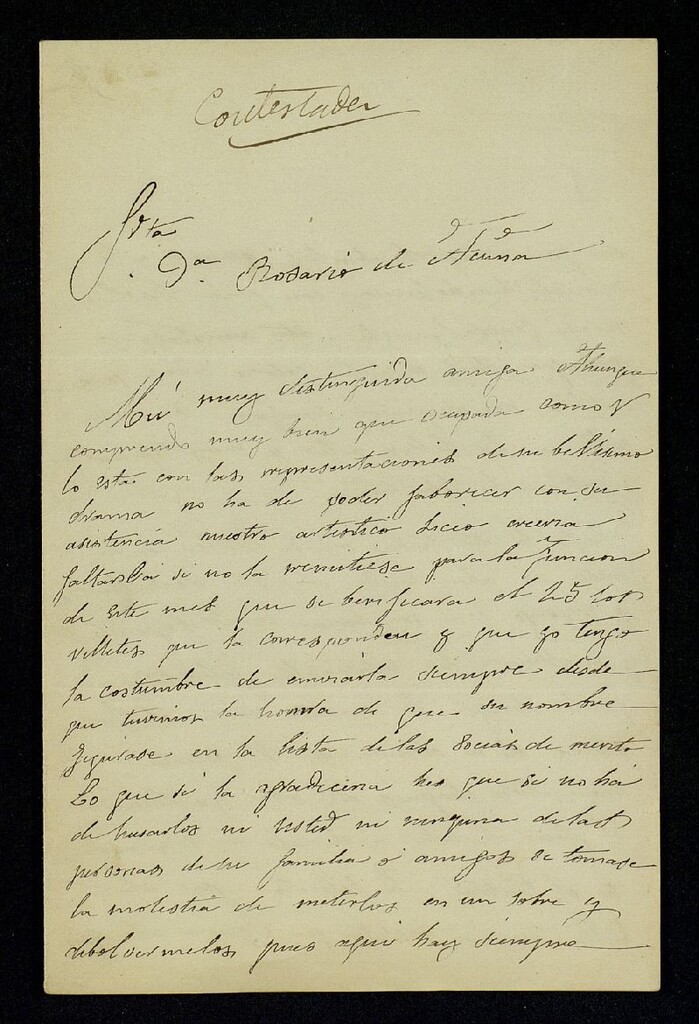 Contestada
Srta
Dª Rosario de Acuña
Mui muy distinguida amiga Ahunque
comprendo muy bien que ocupada como V
lo está con las representaciones de su bellisimo
drama no ha de poder faborecer con su
asistencia nuestro artistico Liceo creeria
faltarla si no la remitiese para la funcion
de este mes que se berificara el 25 los
villetes que la corresponden y que yo tengo
la costumbre de enviarla siempre desde
que tuvimos la honrra de que su nombre
figurase en la lista de las socias de merito
Lo que si la agradeceria hes que si no ha
de husarlos ni Usted ni ninguna de las
personas de su familia o amigos se tomase
la molestia de meterlos en un sobre y
debolvermelos pues aqui hay siempre